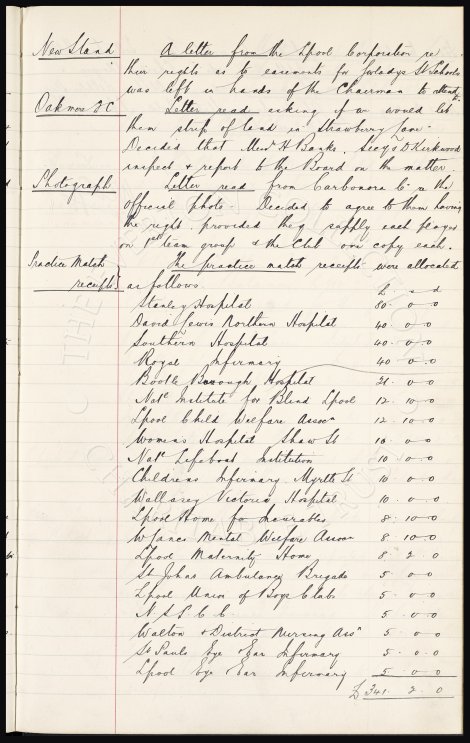 New Stand A letter from the Lpool Corporation re
their rights as to easements for Gwladys St Schools
was left in hands of the Chairman to attend to.
Oakmere F C Letter read asking if we would let
them strip of land in Strawberry Lane.
Decided that Messrs H Banks. Secy & D Kirkwood
inspect & report to the Board on the matter.
Photograph Letter read from Carbonora Co re the
official photo. Decided to agree to them having
the right provided they supply each player
on 1st team group & the Club one copy each.
Practice Match The practice match receipts were allocated
receipts as follows £ s d
Stanley Hospital 80 0 0
David Lewis Northern Hospital 40 0 0
Southern Hospital 40 0 0
Royal Infirmary 40 0 0
Bootle Borough Hospital 21 0 0
Natl Institute for Blind Lpool 12 10 0
Lpool Child Welfare Assocn 12 10 0
Womens Hospital Shaw St 10 0 0
Natl Lifeboat Institution 10 0 0
Childrens Infirmary Myrtle St 10 0 0
Wallasey Victoria Hospital 10 0 0
Lpool Home for Incurables 8 10 0
W Lancs Mental Welfare Assocn 8 10 0
Lpool Maternity Home 8 2 0
St Johns Ambulance Brigade 5 0 0
Lpool Union of Boys Clubs 5 0 0
N S P C C 5 0 0
Walton & District Nursing Assn 5 0 0
St Pauls Eye & Ear Infirmary 5 0 0
Lpool Eye & Ear Infirmary 5 0 0
£ 341 2 0